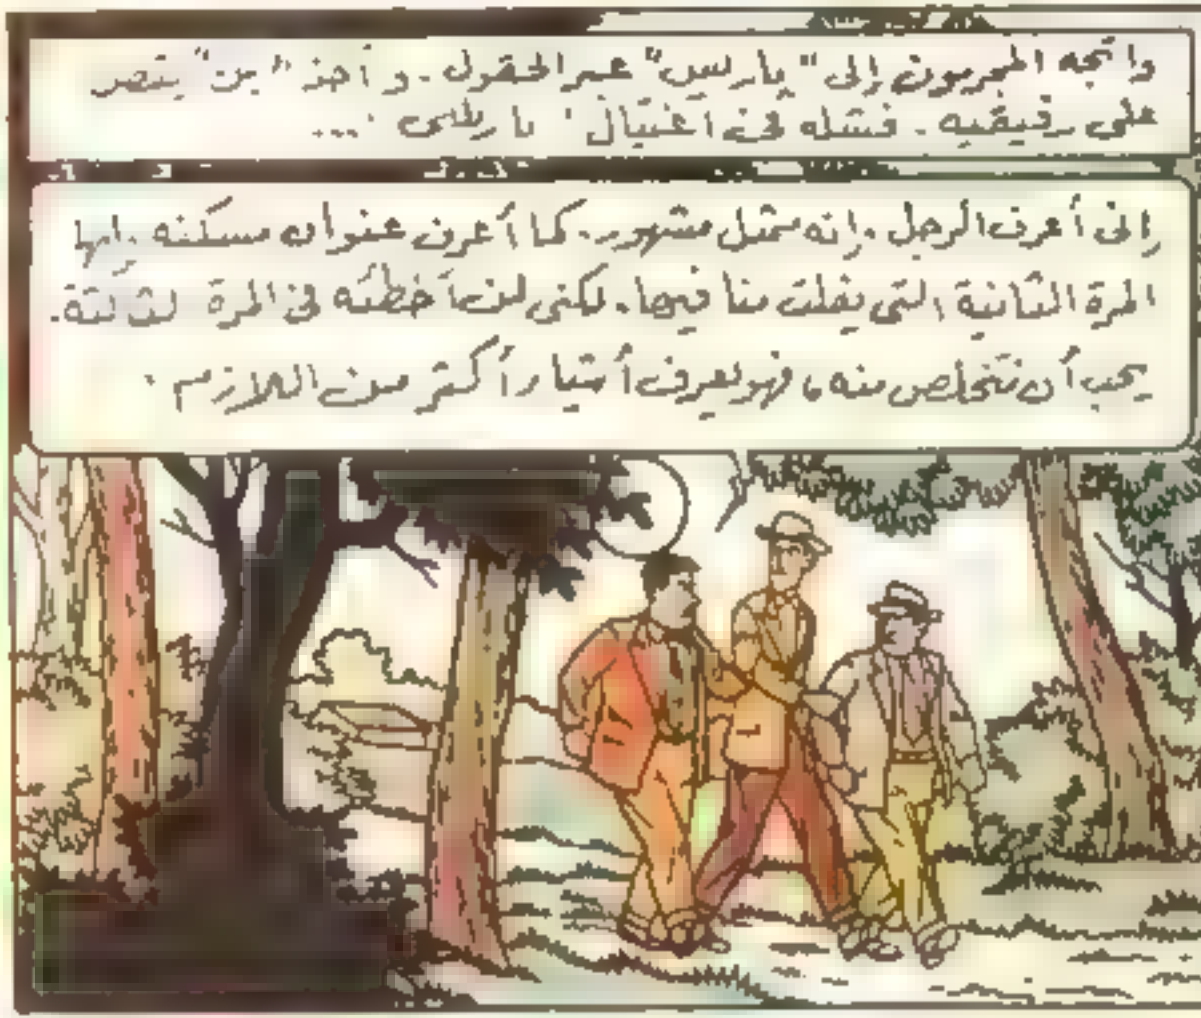 واتجه المجرمون إلى "باريس" عبر الحقول. و أخذ "بن" يقص
على رفيقيه. فشله في اغتيال "باريللى"...
إنى أعرف الرجل. إنه ممثل مشهور. كما أعرف عنوان مسكنه. إنها
المرة الثانية التى يفلت منا فيها. لكنى لن أخطئه فى المرة الثالثة.
يجب أن نتخلص منه، فهو يعرف أشياء أكثر من اللازم.